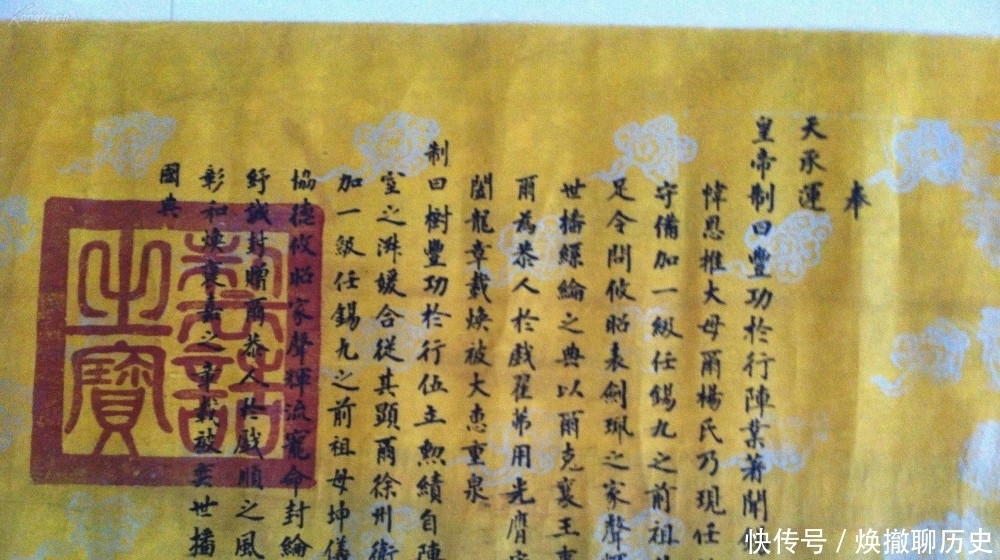 奉
天承運
皇帝制曰豐功於行陣業著聞
幃恩推大母爾楊氏乃現任
守備加一級任錫九之前祖
足令問攸昭表劍珮之家聲
世播綸之典以爾克襄王
爾為恭人於戲翟茀用光膺
龍章載煥被大恵重泉
制曰樹豐功於行伍立勲績自陣
室之媛合從其顯爾徐州衛
加一級任錫九之前祖母坤儀
協德攸昭家聲輝流寵命封綸
紓誠封贈爾恭人於戲順之風
彰和煥褒嘉之章載被奕世播
國典
制誥之寶
快传号 / 焕撤聊历史